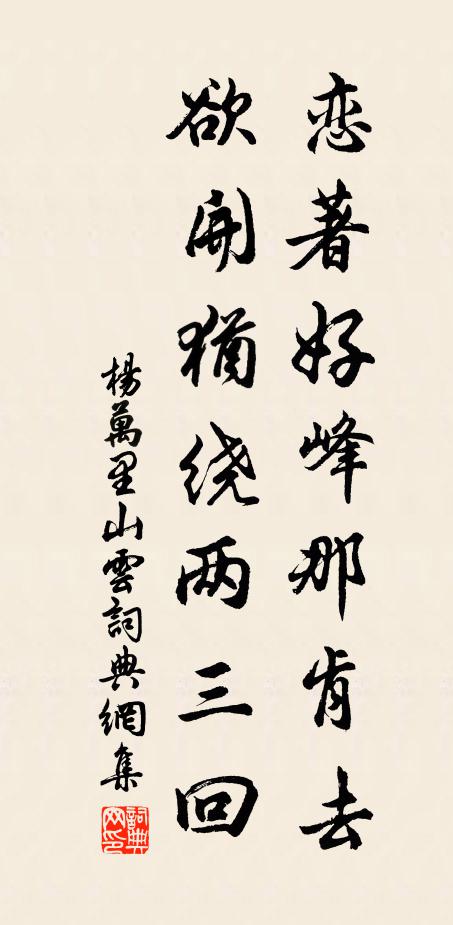 恋著好峰那肯去
欲開猶绕两三回
楊萬里山雲詞典網集
詞典網印